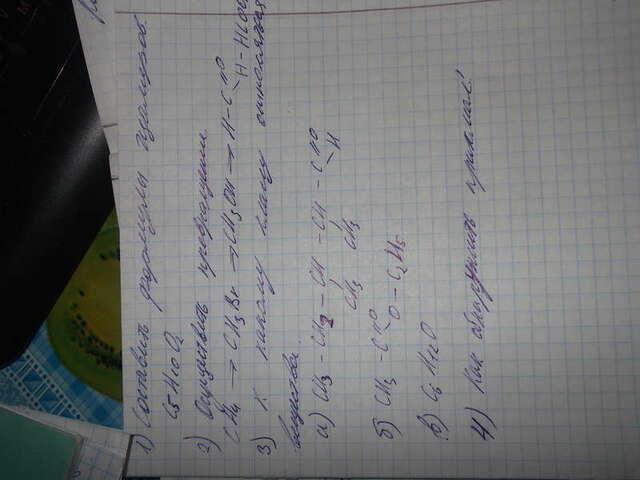 1) Составить формулы изомеров
C5H10O2
2) Осуществить превращения
CH4 → CH3Br → CH3OH → H-C=O
H - HCOO
3) К какому классу относятся
вещества:
а) CH3 - CH2 - CH - CH - C=O
CH3 CH3 H
б) CH3 - C=O
O - C2H5
в)
4) Как обнаружить крахмал?